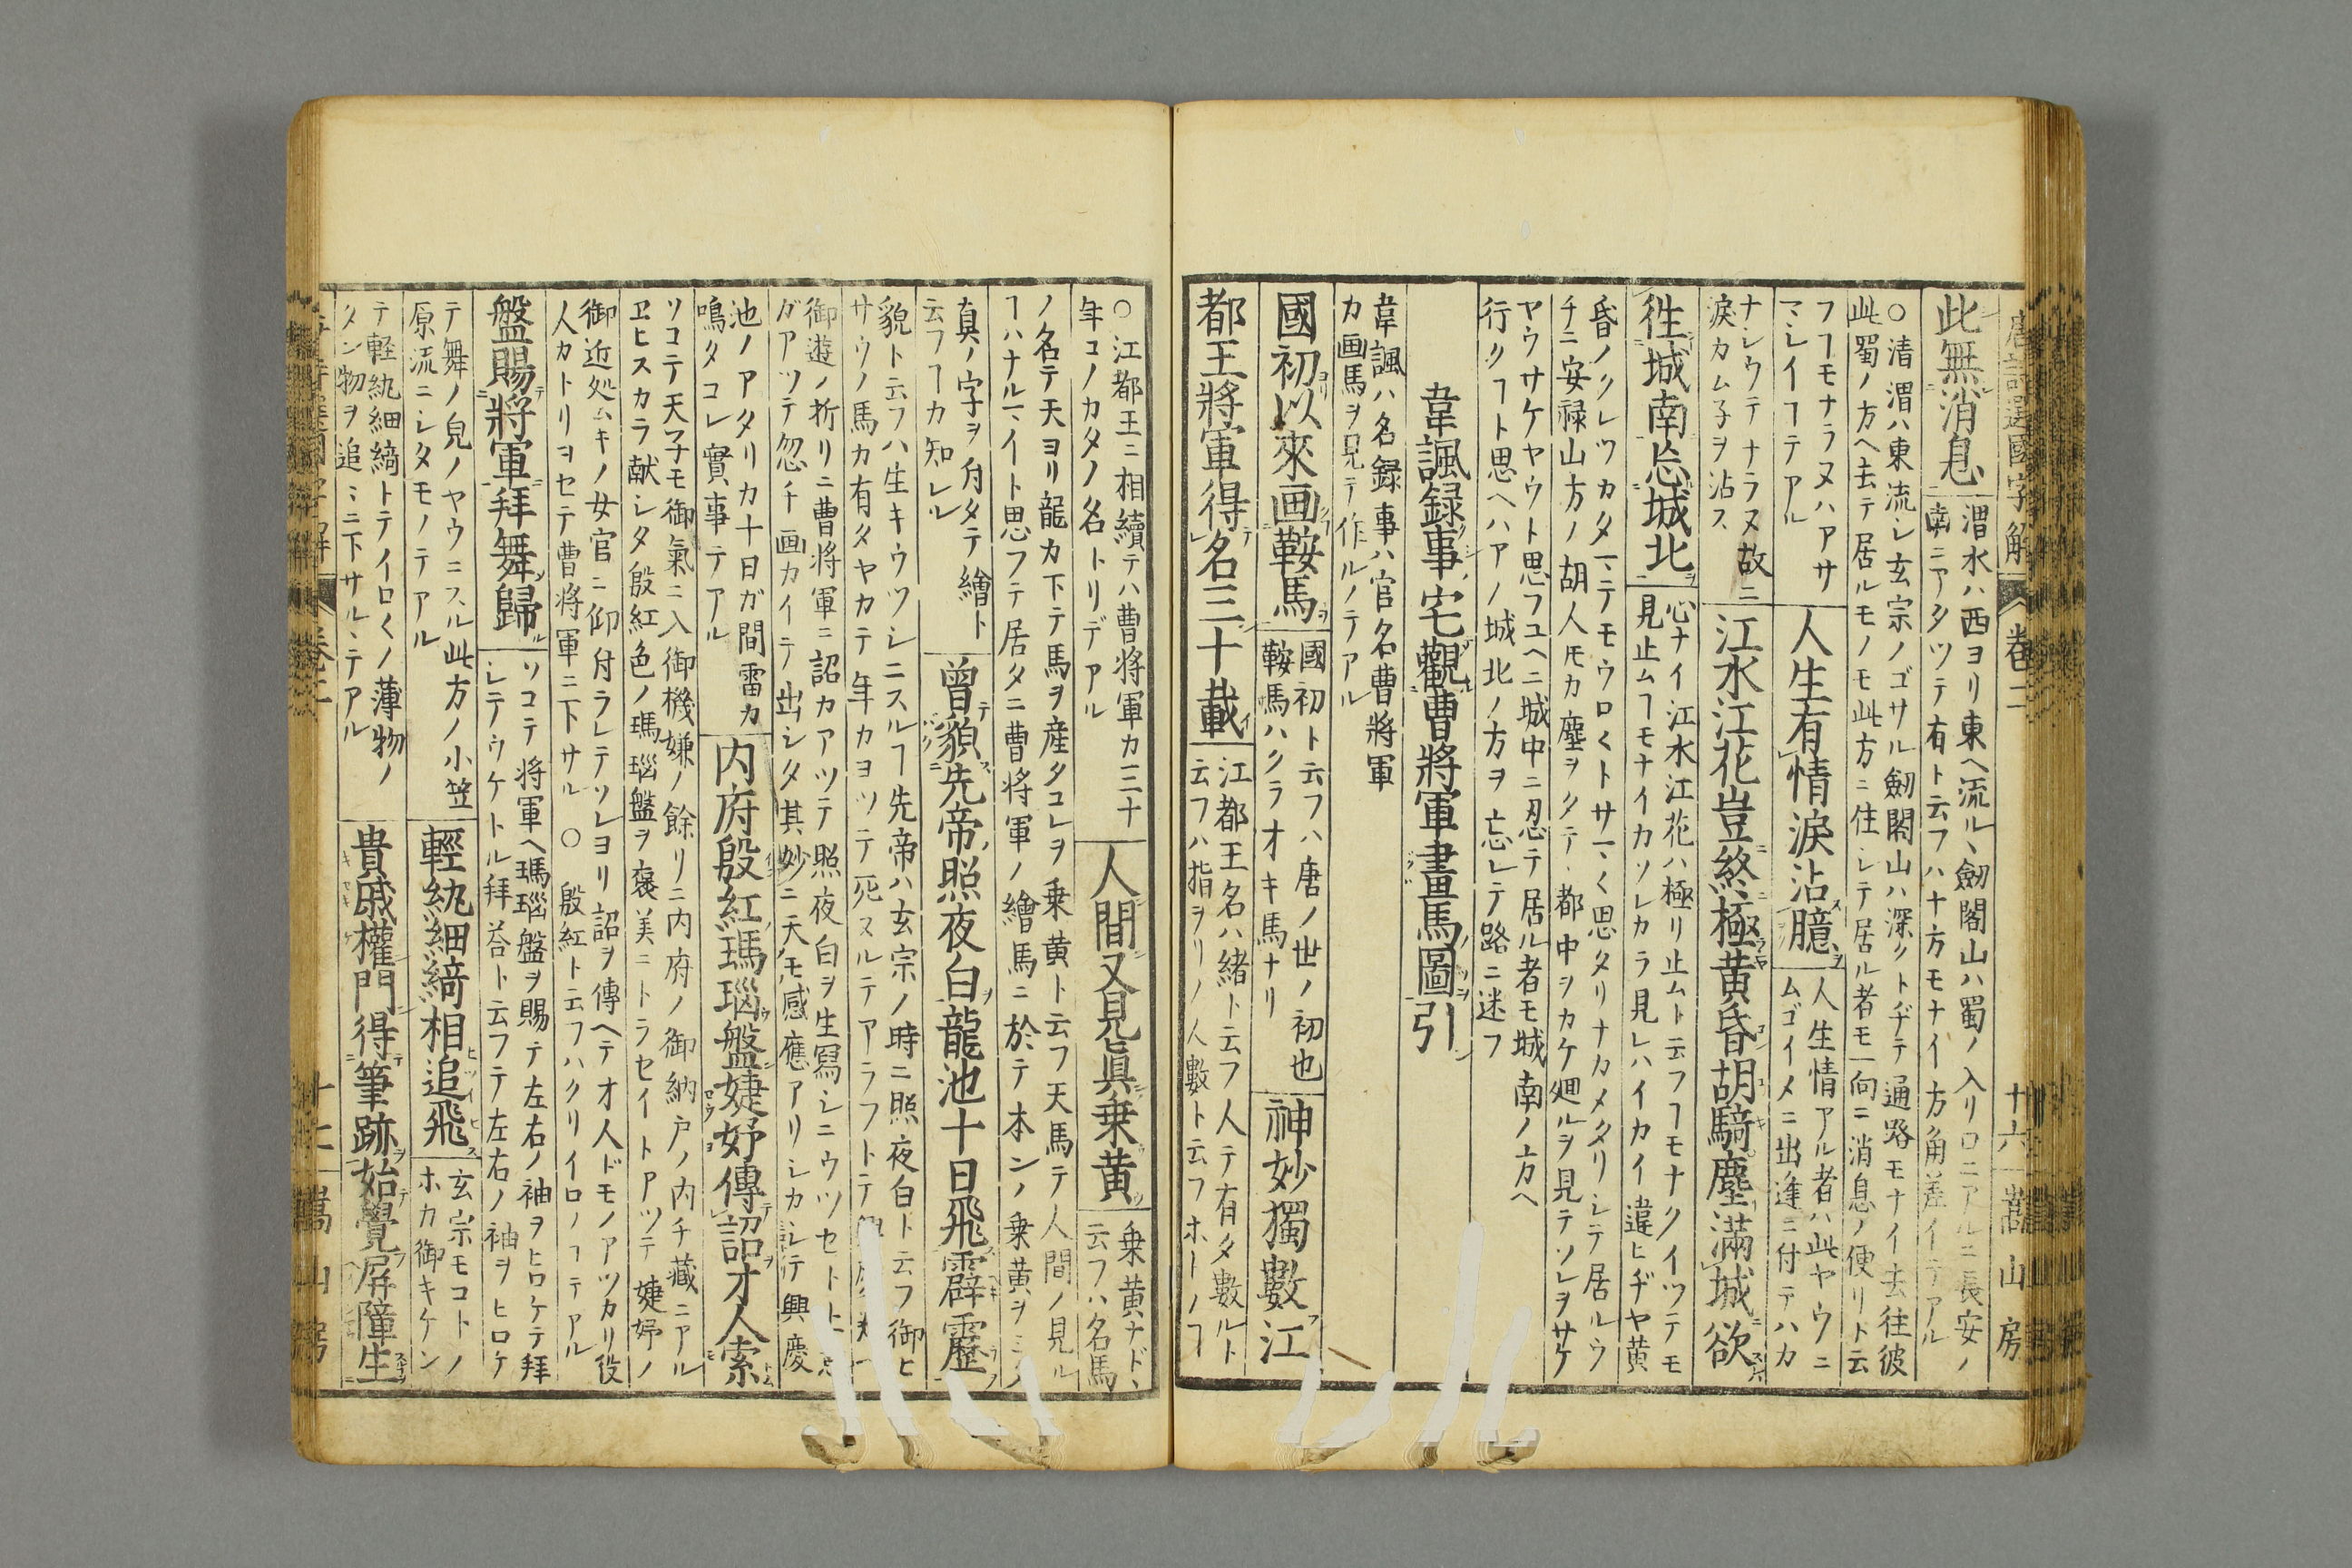 唐詩選國字解 卷二 十六 嵩山房
此無消息
渭水ハ西ヨリ東ヘ流ル劔閣山ハ蜀ノ入リ口ニアルニ長安ノ
南ニアタツテ有ト云フハ十方モナイ方角差イテアル
○清渭ハ東流シ玄宗ノゴサル劔閣山ハ深クトヂテ通路モナイ去往彼
此蜀ノ方ヘ去テ居ルモノモ此方ニ住シテ居ル者モ一向ニ消息ノ便リト云
フヿモナラヌハアサ
マシイヿテアル
人生有情淚沾臆
人生情アル者ハ此ヤウニ
ムゴイメニ出逢ニ付テハカ
ナシウテナラヌ故ニ
淚カム子ヲ沾ス
江水江花豈終極黄昏胡騎塵滿城欲
徃城南忘城北
心ナイ江水江花ハ極リ止ムト云フヿモナクイツテモ
見止ムヿモナイカソレカラ見レハイカイ違ヒヂヤ黄
昏ノクレツカタマテモウロ〱トサマ〱思タリナカメタリシテ居ルウ
チニ安禄山方ノ胡人𪜈カ塵ヲタテ都中ヲカケ廻ルヲ見テソレヲサケ
ヤウサケヤウト思フユヘニ城中ニ忍テ居ル者モ城南ノ方ヘ
行クヿト思ヘハアノ城北ノ方ヲ忘レテ路ニ迷フ
韋諷録事宅觀曹將軍畫馬圖引
韋諷ハ名録事ハ官名曹將軍
カ画馬ヲ見テ作ルノテアル
國初以來画鞍馬
國初ト云フハ唐ノ世ノ初也
鞍馬ハクラオキ馬ナリ
神妙獨數江
都王將軍得名三十載
江都王名ハ緒ト云フ人テ有タ數ルト
云フハ指ヲリノ人數ト云フホトノヿ
○江都王ニ相續テハ曹将軍カ三十
年コノカタノ名トリデアル
人間又見眞乗黄
乗黄ナド
云フハ名馬
ノ名テ天ヨリ龍カ下テ馬ヲ産タコレヲ乗黄ト云フ天馬テ人間ノ見ル
ヿハナルマイト思フテ居タニ曹将軍ノ繪馬ニ於テ本ンノ乗黄ヲミ
眞ノ字ヲ付タテ繪ト
云フヿカ知レル
曾貌先帝照夜白龍池十日飛霹靂
貌ト云フハ生キウツシニスルヿ先帝ハ玄宗ノ時ニ照夜白ト云フ御ヒ
サウノ馬カ有タヤカテ年カヨツテ死ヌルテアラフトテ
御遊ノ折リニ曹将軍ニ詔カアツテ照夜白ヲ生寫シニウツセト
ガアツテ忽チ画カイテ出シタ其妙ニ天モ感應アリシカシテ興慶
池ノアタリカ十日ガ間雷カ
鳴タコレ實事テアル
内府殷紅瑪瑙盤婕妤傳詔才人索
ソコテ天子モ御氣ニ入御機嫌ノ餘リニ内府ノ御納戸ノ内チ藏ニアル
ヱヒスカラ献シタ殷紅色ノ瑪瑙盤ヲ褒美ニトラセイトアツテ婕妤ノ
御近処ムキノ女官ニ仰付ラレテソレヨリ詔ヲ傳ヘテオ人ドモノアツカリ役
人カトリヨセテ曹将軍ニ下サル ○ 殷紅ト云フハクリイロノヿテアル
盤賜將軍拜舞歸
ソコテ将軍ヘ瑪瑙盤ヲ賜テ左右ノ袖ヲヒロケテ拜
シテウケトル拜荅ト云フテ左右ノ袖ヲヒロケ
テ舞ノ皃ノヤウニスル此方ノ小笠
原流ニシタモノテアル
輕紈細綺相追飛
玄宗モコトノ
ホカ御キケン
テ軽紈細綺トテイロ〱ノ薄物ノ
タン物ヲ追〻ニ下サルヽテアル
貴戚權門得筆跡始覺屏障生
嵩山房